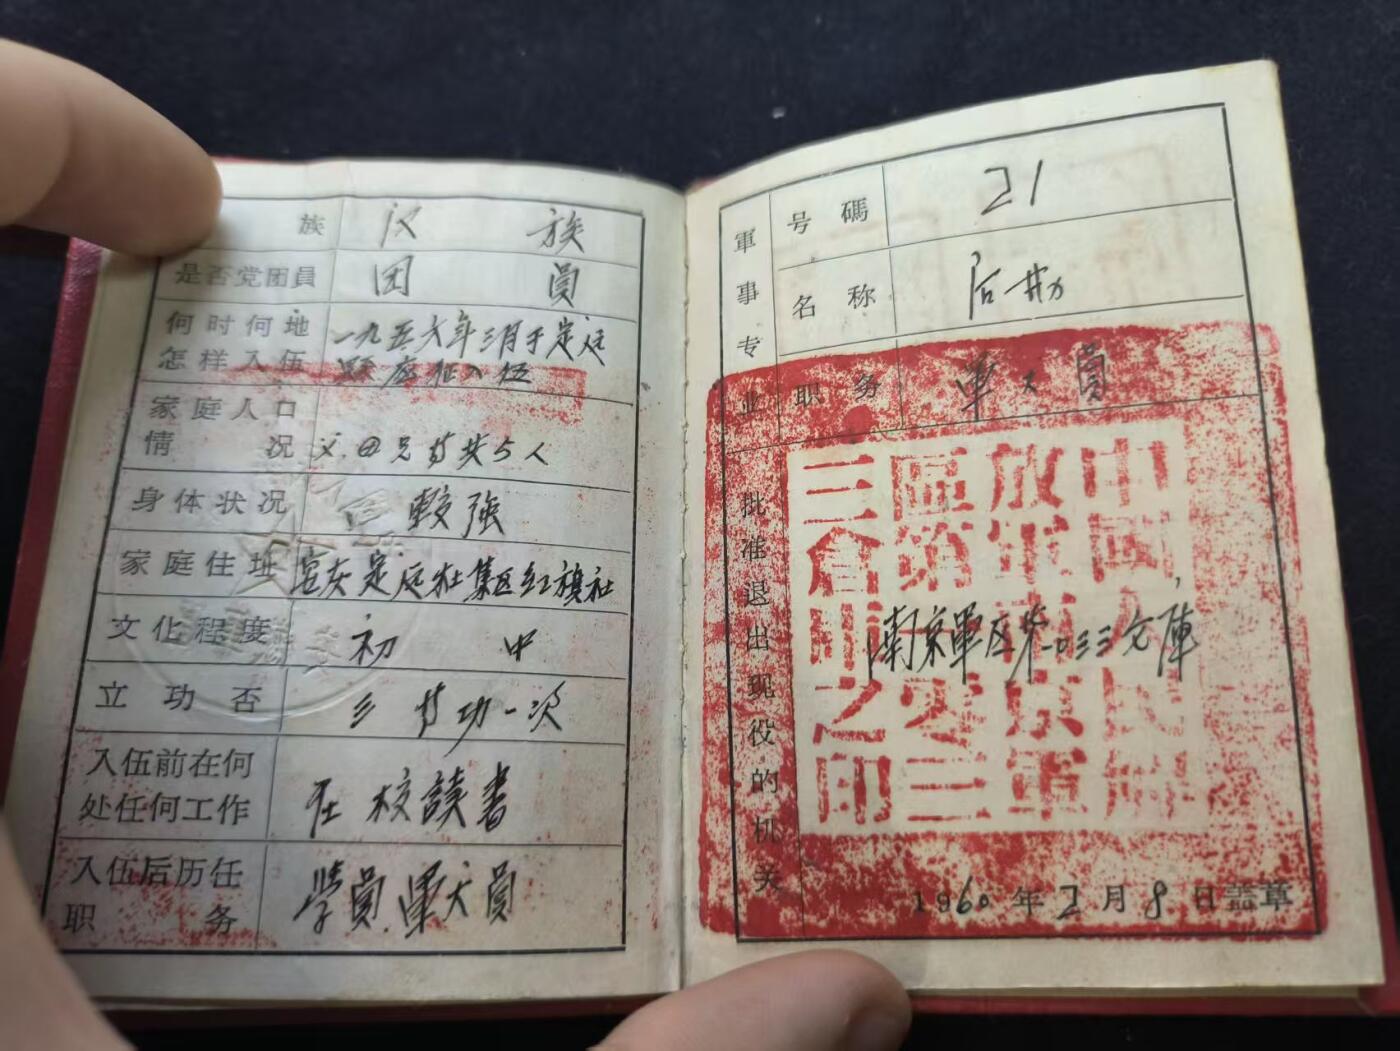 族 汉 族
是否党团員 团 員
何时何地 一九五六年三月于定远
怎样入伍 县应征入伍
家庭人口
情 况 父母兄弟共5人
身体状况 較強
家庭住址 定远 集区红旗社
文化程度 初 中
立功否 三等功一次
入伍前在何
处任何工作 在校讀書
入伍后历任 学員.軍犬員
职 务
軍事专业
号碼 21
名称 后勤
职务 軍犬員
批准退出现役的机关
南京軍区第一0三三仓庫
中國人民解
放軍南京軍
區第一零三
三倉庫之印
1960年2月8日盖章